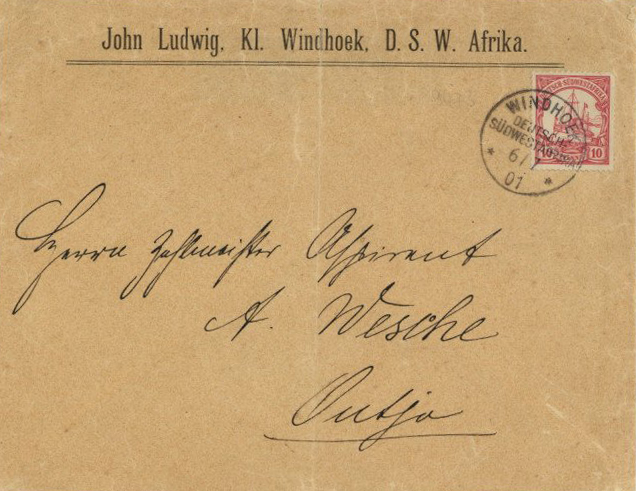 John Ludwig, Kl. Windhoek, D. S. W. Afrika.
WINDHOEK
DEUTSCH-
SÜDWESTAFRIKA
6/7
01
10
Herrn Zahlmeister Aspirent
A. Wesche
Outjo